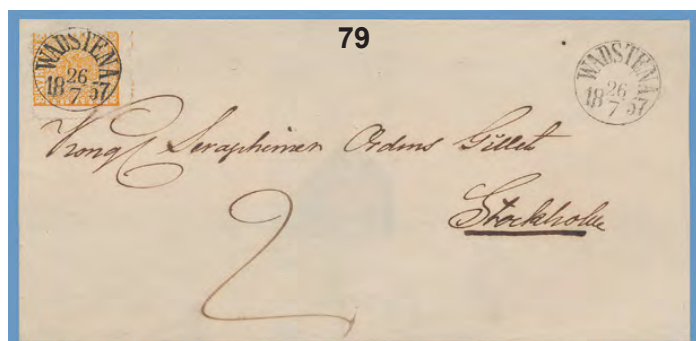 79
WADSTENA
26
18 57
7
WADSTENA
26
18 57
7
Kongl Seraphimer Ordens Gillet
Stockholm
2